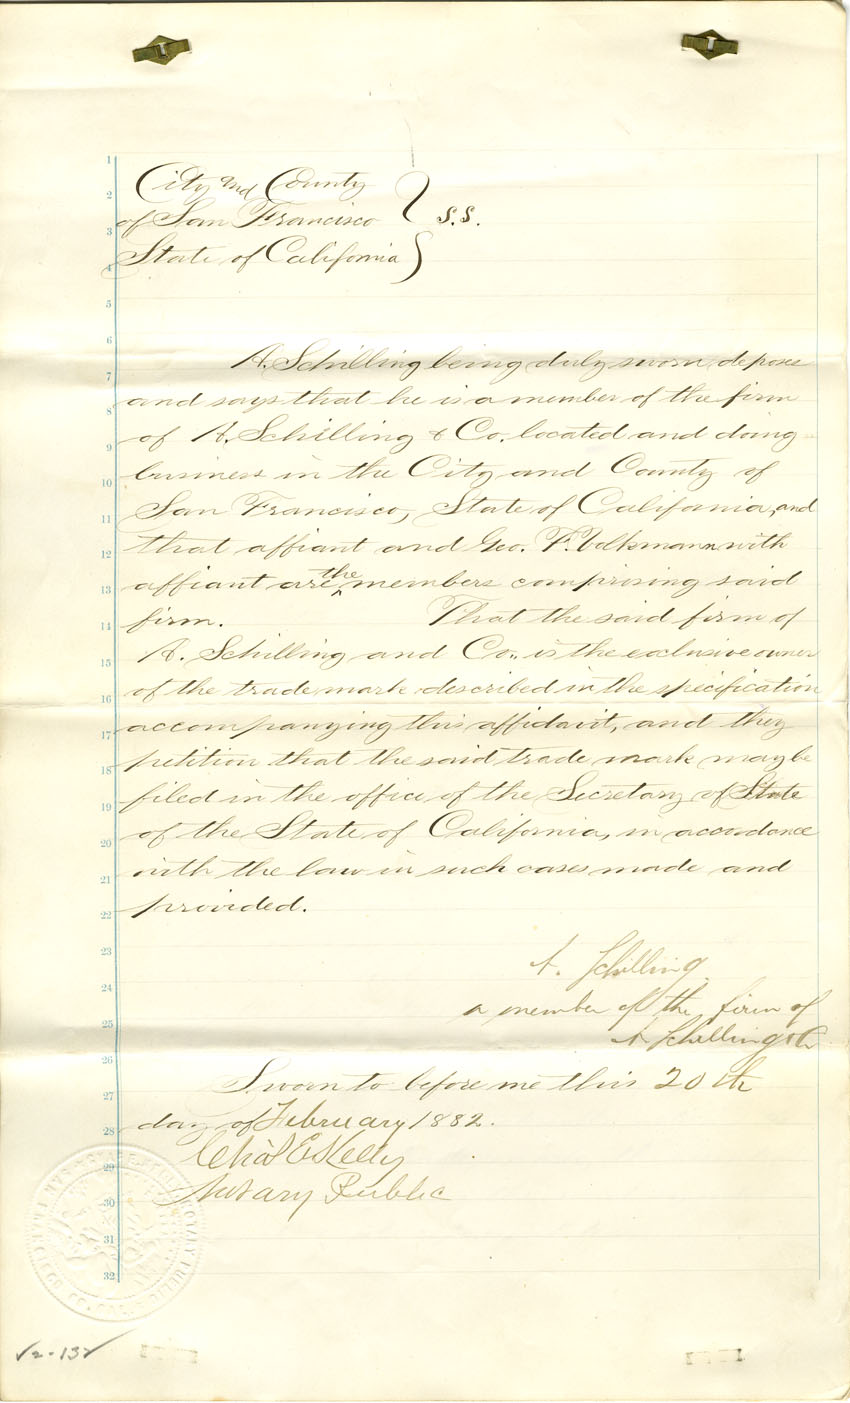 1
City and County
2
of San Francisco } S.S.
3
State of California
4
5
6
A. Schilling being duly sworn, deposes
7
and says that he is a member of the firm
8
of A. Schilling & Co. located and doing
9
business in the City and County of
10
San Francisco, State of California, and
11
that affiant and Geo. F. Volkmann with
12
affiant are the members comprising said
13
firm. That the said firm of
14
A. Schilling and Co., is the exclusive owner
15
of the trade mark described in the specification
16
accompanying this affidavit, and they
17
petition that the said trade mark may be
18
filed in the office of the Secretary of State
19
of the State of California, in accordance
20
with the law in such cases made and
21
provided.
22
23
A. Schilling
24
a member of the firm of
25
A Schilling & Co
26
Sworn to before me this 20th
27
day of February 1882.
28
Chas E Kelly
29
Notary Public
30
31
32
NOTARY PUBLIC
SAN FRANCISCO CO. CAL.
2-132